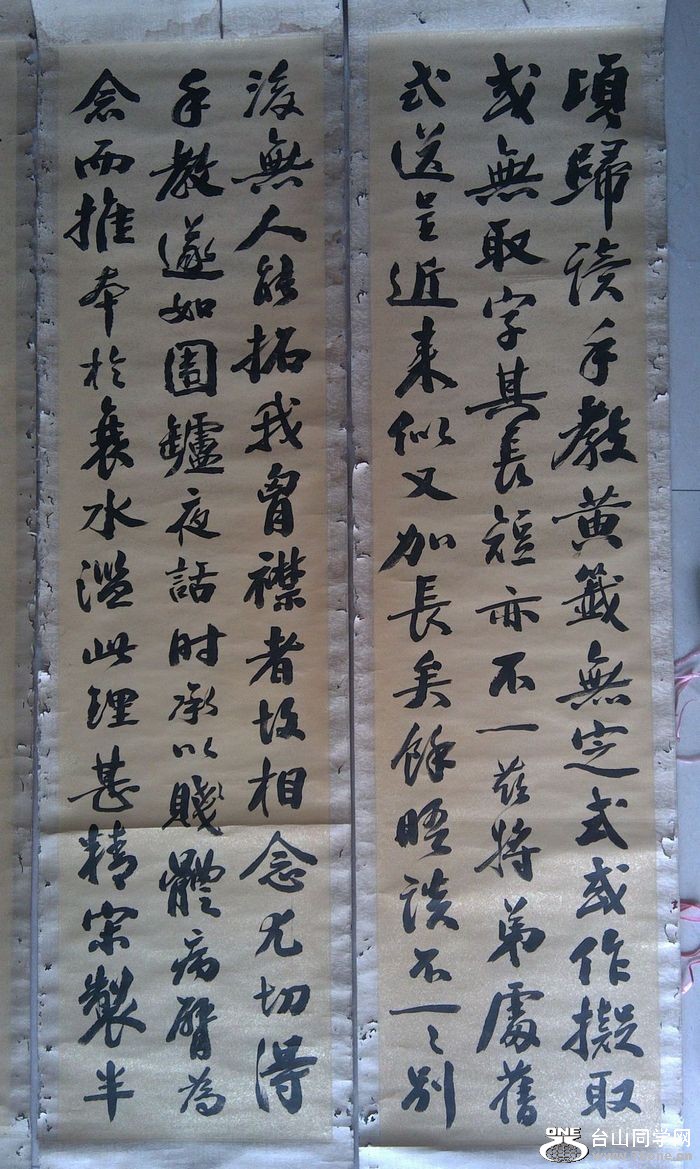 頃歸讀手教黃籤無定式或作擬取
或無取字其長短亦不一茲將弟處舊
式送呈近来似又加長矣餘晤談不一〻別
後無人能拓我胷襟者故相念尤切得
手教遂如圍罏夜話时承以賤體病臂為
念而推本於襄水濫此理甚精宗製半
ONE 台山同学网